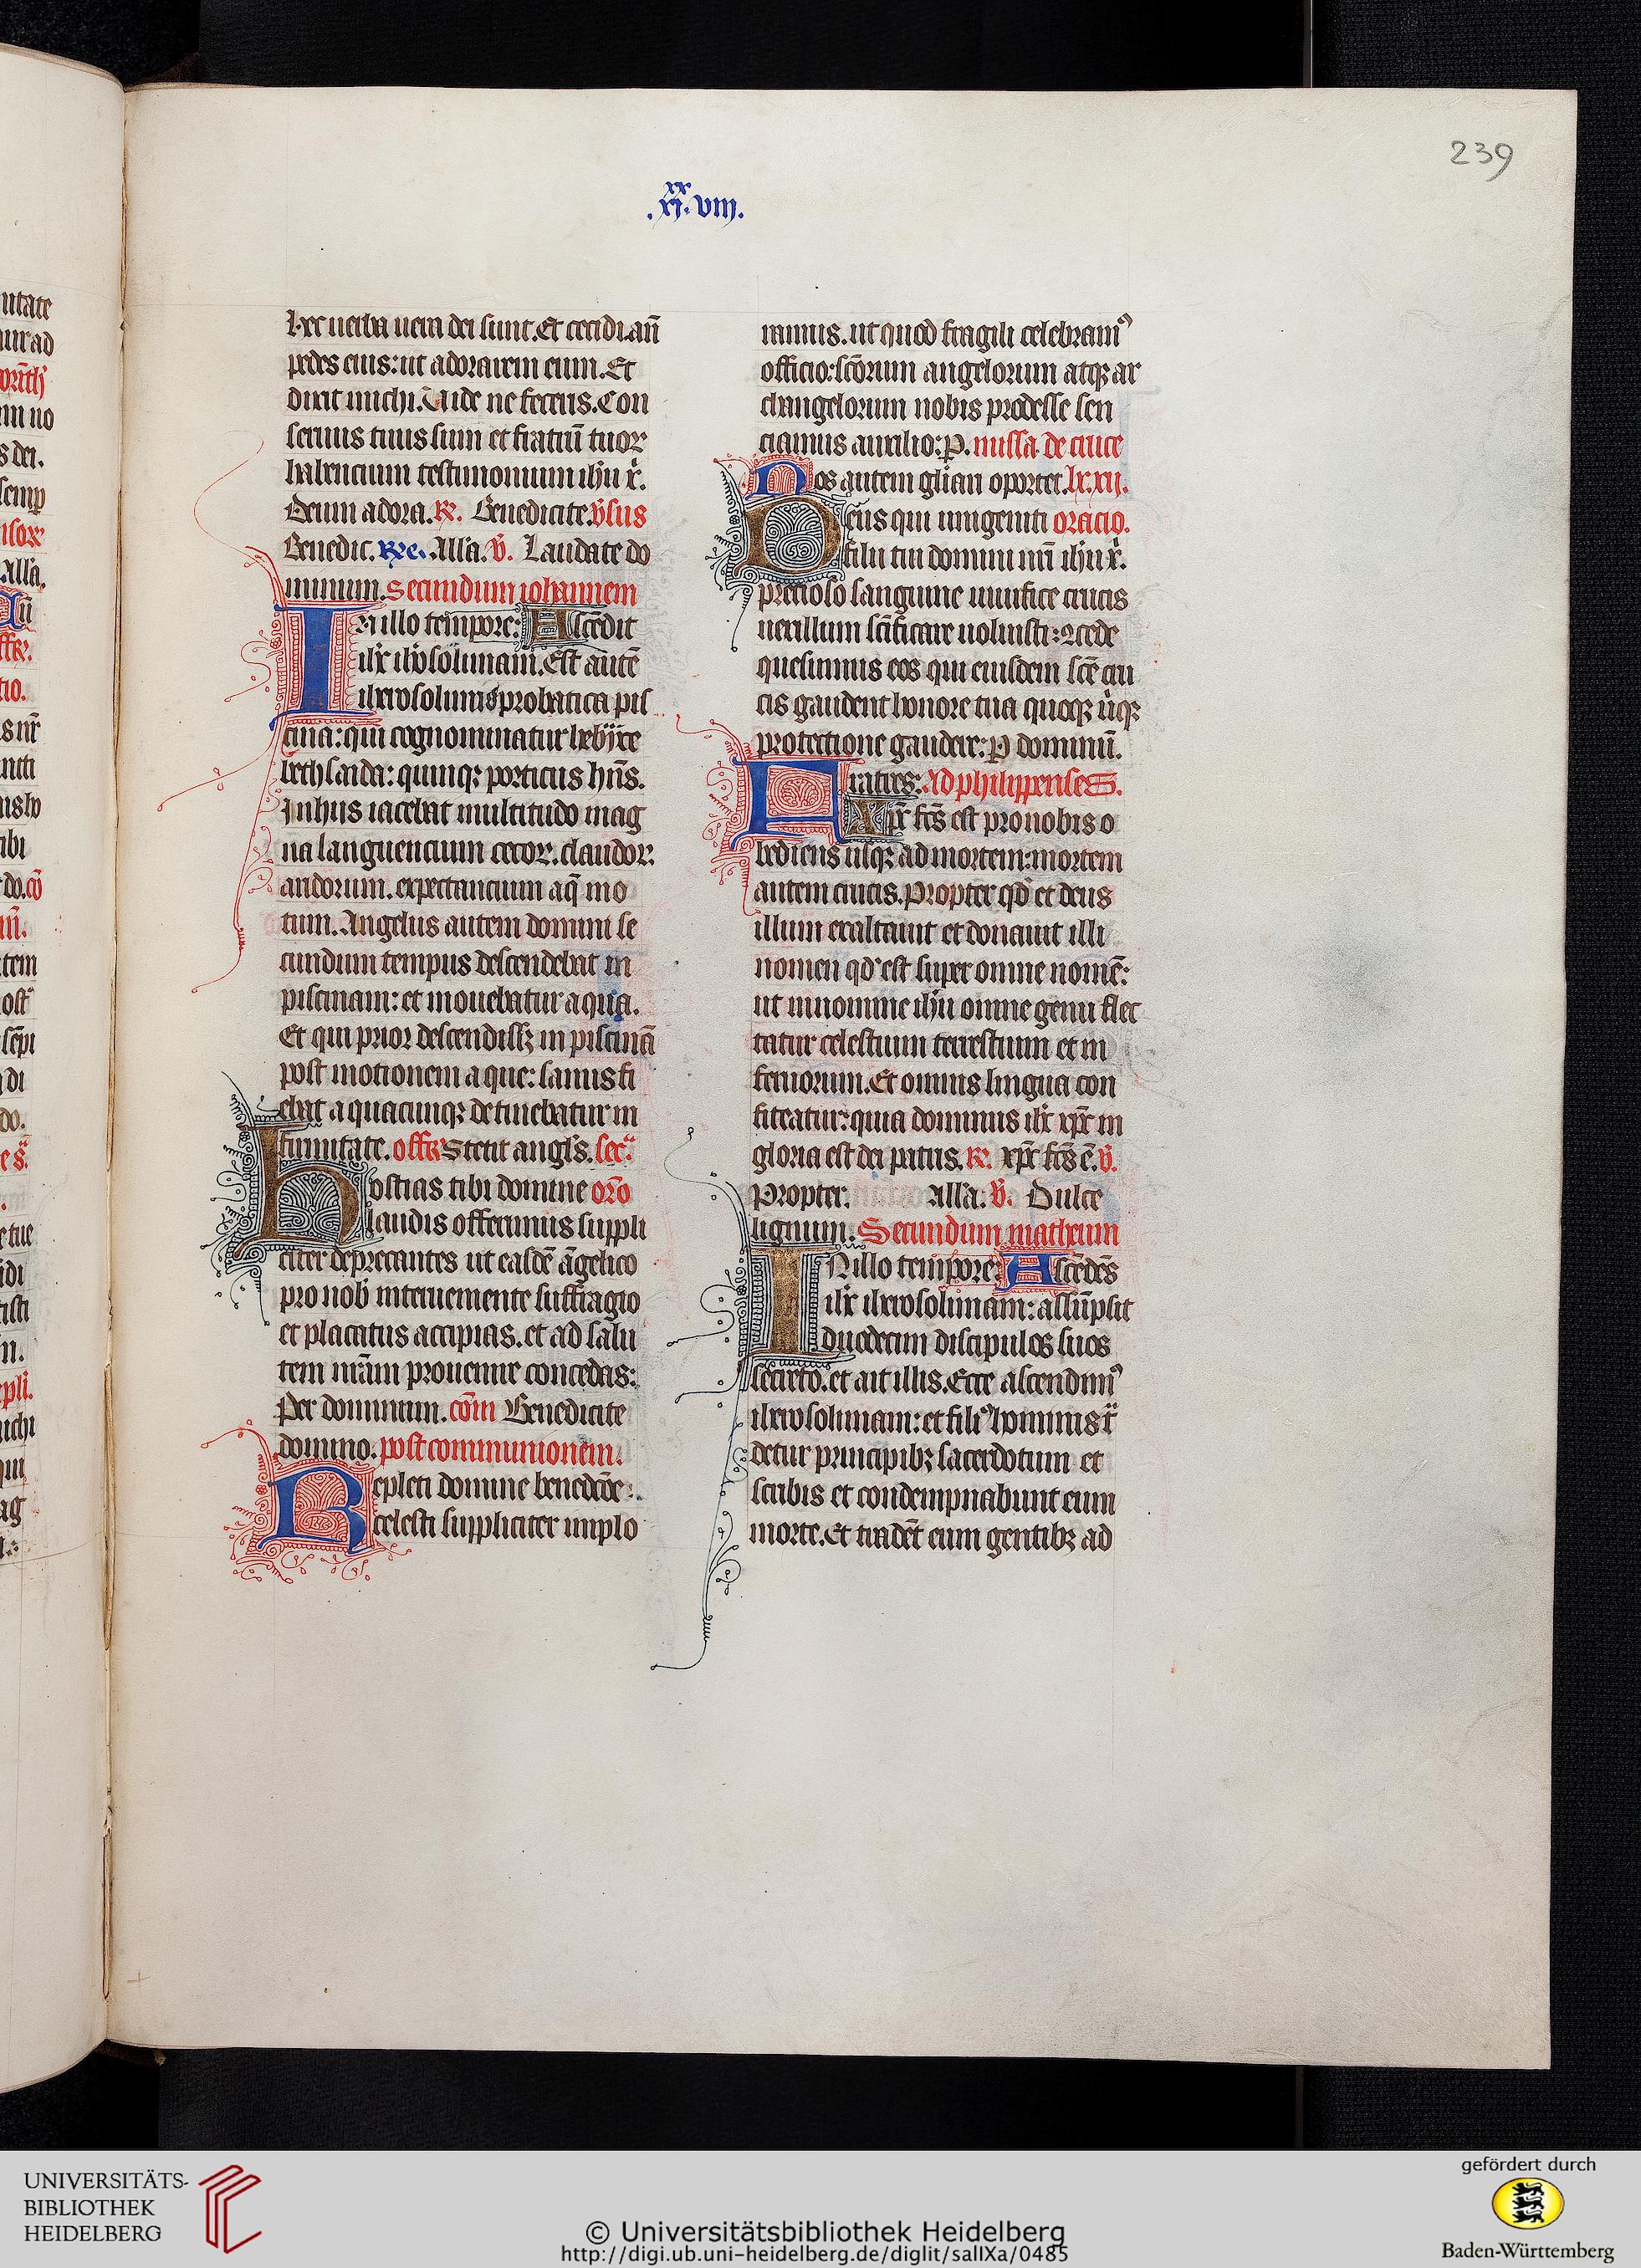 239
.xi.viii.
xx
hec uerba uera dei sunt. Et cecidi añ
pedes eius: ut adorarem eum. Et
dixit michi. Uide ne feceris. Con
seruus tuus sum et fratrū tuoꝝ
habencium testimonium ihu x̄.
Deum adora. ℟. Benedicite. v̄sus
Benedic. Alla. v̄. Laudate do
minum. Secundum iohannem
In illo tempore: Ascēdit
ihc iherosolimam. Est autē
iherosolimis probatica pis
cina: qui cognominatur hebrayce
bethsaida: quinqꝫ porticus hñs.
In hiis iacebat multitudo mag
na languencium cecoꝝ. claudoꝝ.
aridorum. expectancium aq̄ mo
tum. Angelus autem domini se
cundum tempus descendebat in
piscinam: et mouebatur aqua.
Et qui prior descendissꝫ in piscinā
post motionem aque: sanus fi
ebat a quacumqꝫ detinebatur in
firmitate. off̄ Stetit angls. sec̄.
hostias tibi domine or̄o
laudis offerimus suppli
citer deprecantes ut easdē āgelico
pro nob interueniente suffragio
et placatus accipias. et ad salu
tem nr̄am prouenire concedas:
Per dominum. com̄ Benedicite
domino. post communionem.
Repleti domine benedcōe
celesti suppliciter implo
ramus. ut quod fragili celebram⁹
officio: sc̄orum angelorum atqꝫ ar
changelorum nobis prodesse sen
ciamus auxilio: P. missa de cruce
Nos autem glīari oportet. lxxii.
Deus qui unigeniti oracio.
filii tui domini nr̄i ihu x̄.
precioso sanguine uiuifice crucis
uexillum sc̄ificare uoluisti: 9cede
quesumus eos qui eiusdem sc̄e cru
cis gaudent honore tua quoqꝫ ubiqꝫ
protectione gaudere: P dominū.
Fratres: Ad philippenses.
Xp̄c fc̄s est pro nobis o
bediens usqꝫ ad mortem: mortem
autem crucis. Propter qd et deus
illum exaltauit et donauit illi
nomen qd est super omne nomē:
ut in nomine ihu omne genu flec
tatur celestium terrestrium et in
fernorum. Et omnis lingua con
fiteatur: quia dominus ihc xp̄c in
gloria est dei patris. ℟. Xp̄c fc̄s ē. v̄.
Propter. Alla: v̄. Dulce
lignum. Secundum matheum
In illo tempore: Ascēdēs
ihc iherosolimam: assūpsit
duodecim discipulos suos
secreto. et ait illis. Ecce ascendim⁹
iherosolimam: et fili⁹ hominis t̄
detur principibꝫ sacerdotum et
scribis et condempnabunt eum
morte. Et tradēt eum gentibꝫ ad
UNIVERSITÄTS-
BIBLIOTHEK
HEIDELBERG
© Universitätsbibliothek Heidelberg
http://digi.ub.uni-heidelberg.de/diglit/salIXa/0485
gefördert durch
Baden-Württemberg